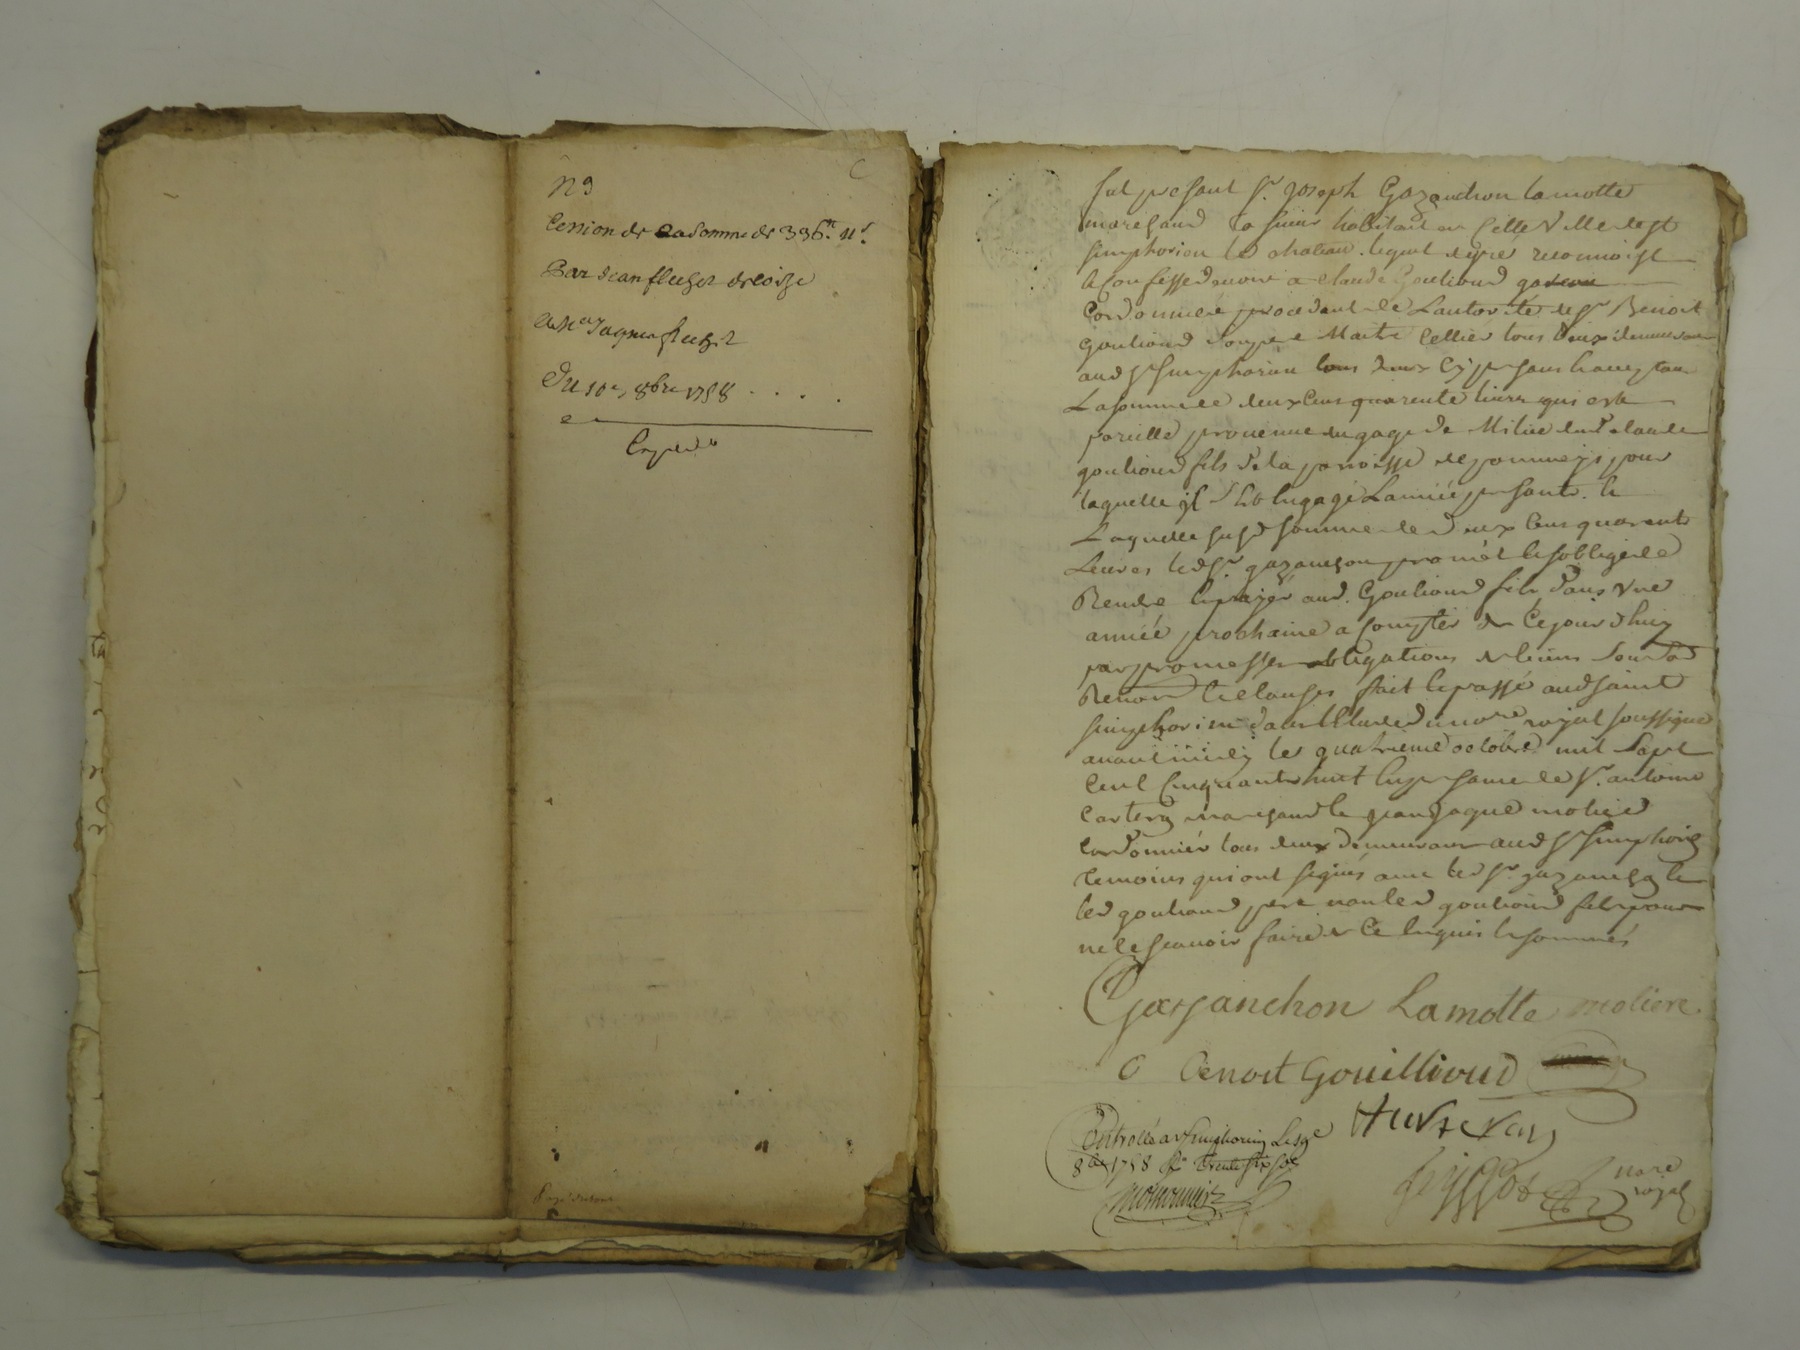 n 9
Cession de la somme de 336 ₶ 11 s.
Par Jean fleche de coise
a Me Jaques fleche
Du 10e 8bre 1758 . . . .
Expédié
fut present Sr. Joseph Gazanchon Lamotte
marchand habitant en cette Ville de St
Simphorien le chateau lequel de gré reconnoist
& Confesse devoir a Claude Goulioud garcon
Cordonnier procedant de Lautorité de Sr Benoit
Goulioud son pere Maitre Cellier tous deux demeurant
aud St Simphorien tous deux Cy presans &
La somme de deux Cens quarente livres qui est
pareille provenue du gage de Milice dud Claude
goulioud fils de la paroisse de pommeys pour
laquelle jl s'est Engagé Lannée presente. &
Laquelle susd somme de deux Cens quarente
Livres led Sr. gazanchon promet & soblige de
Rendre & payer aud. Goulioud fils dans une
année prochaine a Compter de Ce jourdhuy
par promesses obligations de biens
Renon & Clauses fait & passé aud Saint
Simphorien dans Letude du nore royal soussigné
avant midy le quatrieme octobre mil Sept
Cent Cinquante huit En presance de Sr. antoine
marchand & Jean Jaque molied
Cordonnier tous deux demeurant aud St Simphorien
temoins qui ont signés avec led Sr. gazanchon &
led goulioud pere non led goulioud fils pour
ne le scavoir faire de Ce Enquis & sommés
Gazanchon Lamotte moliere
Benoit Gouillioud
Controllé a St Simphorien Le
8bre 1758 Rx trente six sols
nore
royal